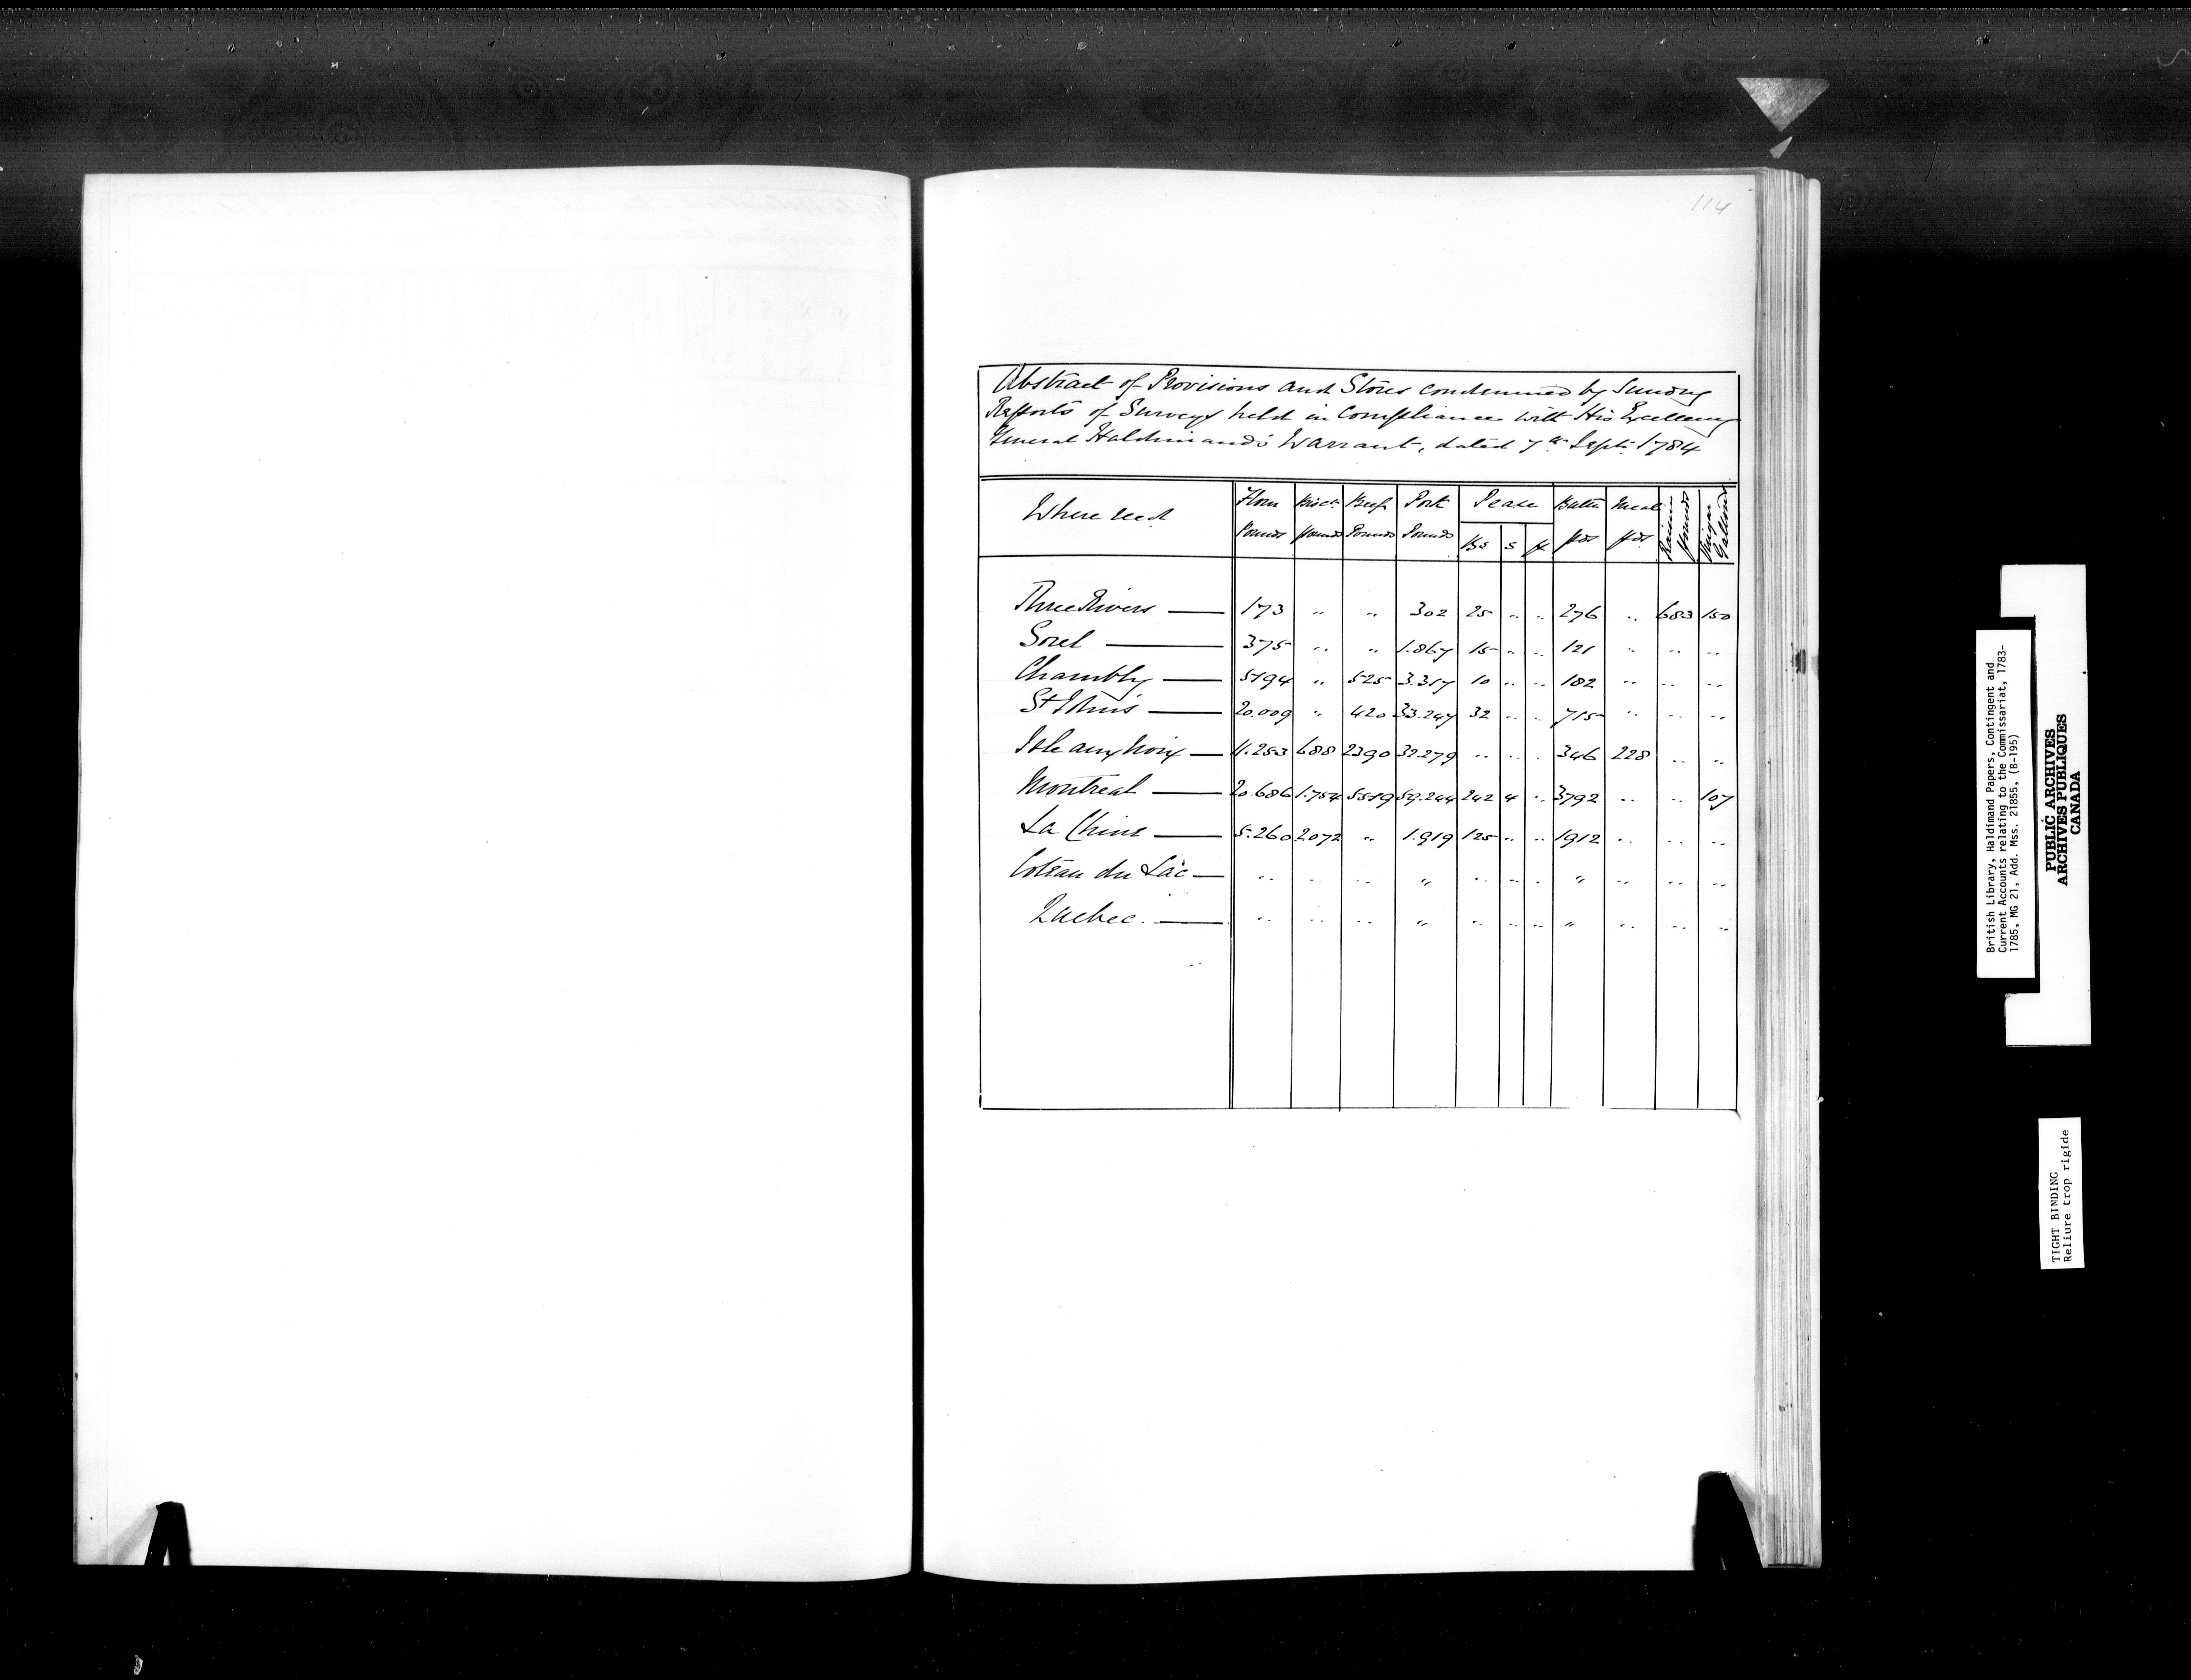 114
Abstract of Provisions and Stores condemned by Sundry
Reports of Surveys held in Compliance with His Excellency
General Haldimand's Warrant, dated 7th Septr 1784
Where used Flour Pounds Bisct Pounds Beef Pounds Pork Pounds Pease Bs G pt Butter pds Meal pds Raisins Pounds Vinigar Gallons
Three Rivers 173 " " 302 25 " " 276 " 683 150
Sorel 375 " " 1.867 15 " " 121 " " "
Chambly 5194 " 525 3.317 10 " " 182 " " "
St Johns 20.009 " 420 33.247 32 " " 715 " " "
Isle aux Noix 11.253 688 2390 32.279 " " " 346 228 " "
Montreal 20.686 1.754 5519 59.244 242 4 " 3792 " " 107
La Chine 5.260 2072 " 1.919 125 " " 1912 " " "
Coteau du Lac " " " " " " " " " " "
Quebec. " " " " " " " " " " "
British Library, Haldimand Papers, Contingent and
Current Accounts relating to the Commissariat, 1783-
1785, MG 21, Add. Mss. 21855, (B-195)
PUBLIC ARCHIVES
ARCHIVES PUBLIQUES
CANADA
TIGHT BINDING
Reliure trop rigide